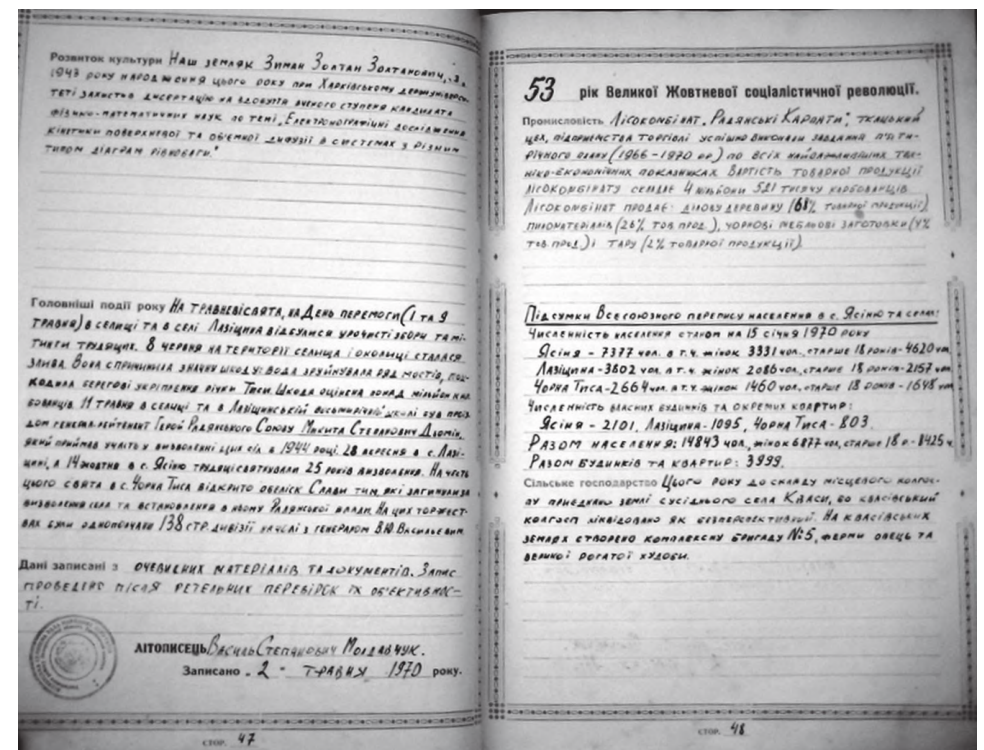 Розвиток культури Наш земляк Зиман Золтан Золтанович, з
1943 року народження цього року при Харківському держуніверси-
теті захистив дисертацію на здобуття вченого ступеня кандидата
фізико-математичних наук по темі „Електронографічні дослідження
кінетики поверхневої та об'ємної дифузії в системах з різним
типом діаграм рівноваги."
Головніші події року На травневі свята, на День перемоги (1 та 9
травня) в селищі та в селі Лазіщина відбулися урочисті збори та мі-
тинги трудящих. 8 червня на території селища і околиці сталася
злива. Вона спричинила значну шкоду: вода зруйнувала ряд мостів, пош-
кодила берегові укріплення річки Тиси. Шкода оцінена понад мільйон кар-
бованців. 11 травня в селищі та в Лазіщинській восьмирічній школі був проїз-
дом генерал-лейтенант Герой Радянського Союзу Микита Степанович Дьомін,
який приймав участь у визволенні цих сіл в 1944 році. 28 вересня в с. Лазі-
щині, а 14 жовтня в с. Ясіню трудящі святкували 25 років визволення. На честь
цього свята в с. Чорна Тиса відкрито обеліск Слави тим, які загинули за
визволення села та встановлення в ньому Радянської влади. На цих торжест-
вах були однополчани 138 стр. дивізії на чолі з генералом В.Ю. Васильевим
Дані записані з очевидних матеріалів та документів. Запис
проведено після ретельних перевірок їх об'єктивнос-
ті.
ЛІТОПИСЕЦЬ Василь Степанович Молдавчук.
Записано „2" травня 1970 року.
СТОР. 47
53 рік Великої Жовтневої соціалістичної революції.
Промисловість Лісокомбінат „Радянські Карпати", ткацький
цех, підприємства торгівлі успішно виконали завдання п'яти-
річного плану (1966-1970 рр) по всіх найважливіших тех-
ніко-економічних показниках Вартість товарної продукції
лісокомбінату складає 4 мільйони 521 тисячу карбованців
Лісокомбінат продає: ділову деревину (68% товарної продукції)
пиломатеріалів (26% тов прод.), чорнові мебльові заготовки (4%
тов прод.) і тару (2% товарної продукції).
Підсумки Всесоюзного перепису населення в с. Ясіню та селах:
Численність населення станом на 15 січня 1970 року
Ясіня - 7377 чол. в т.ч. жінок 3331 чол., старше 18 років - 4620 чол.
Лазіщина - 3602 чол. в т.ч. жінок 2086 чол., старше 18 років - 2157 чол.
Чорна Тиса - 2664 чол. в т.ч. жінок 1460 чол., старше 18 років - 1648 чол.
Численність власних будинків та окремих квартир:
Ясіня - 2101, Лазіщина - 1095, Чорна Тиса - 803.
Разом населення: 14843 чол., жінок 6877 чол., старше 18 р. - 8425 ч.
Разом будинків та квартир: 3999.
Сільське господарство Цього року до складу місцевого колгос-
пу приєднано землі сусіднього села Кваси, бо квасівський
колгосп ліквідовано як безперспективний. На квасівських
землях створено комплексну бригаду №5, ферми овець та
великої рогатої худоби.
СТОР. 48